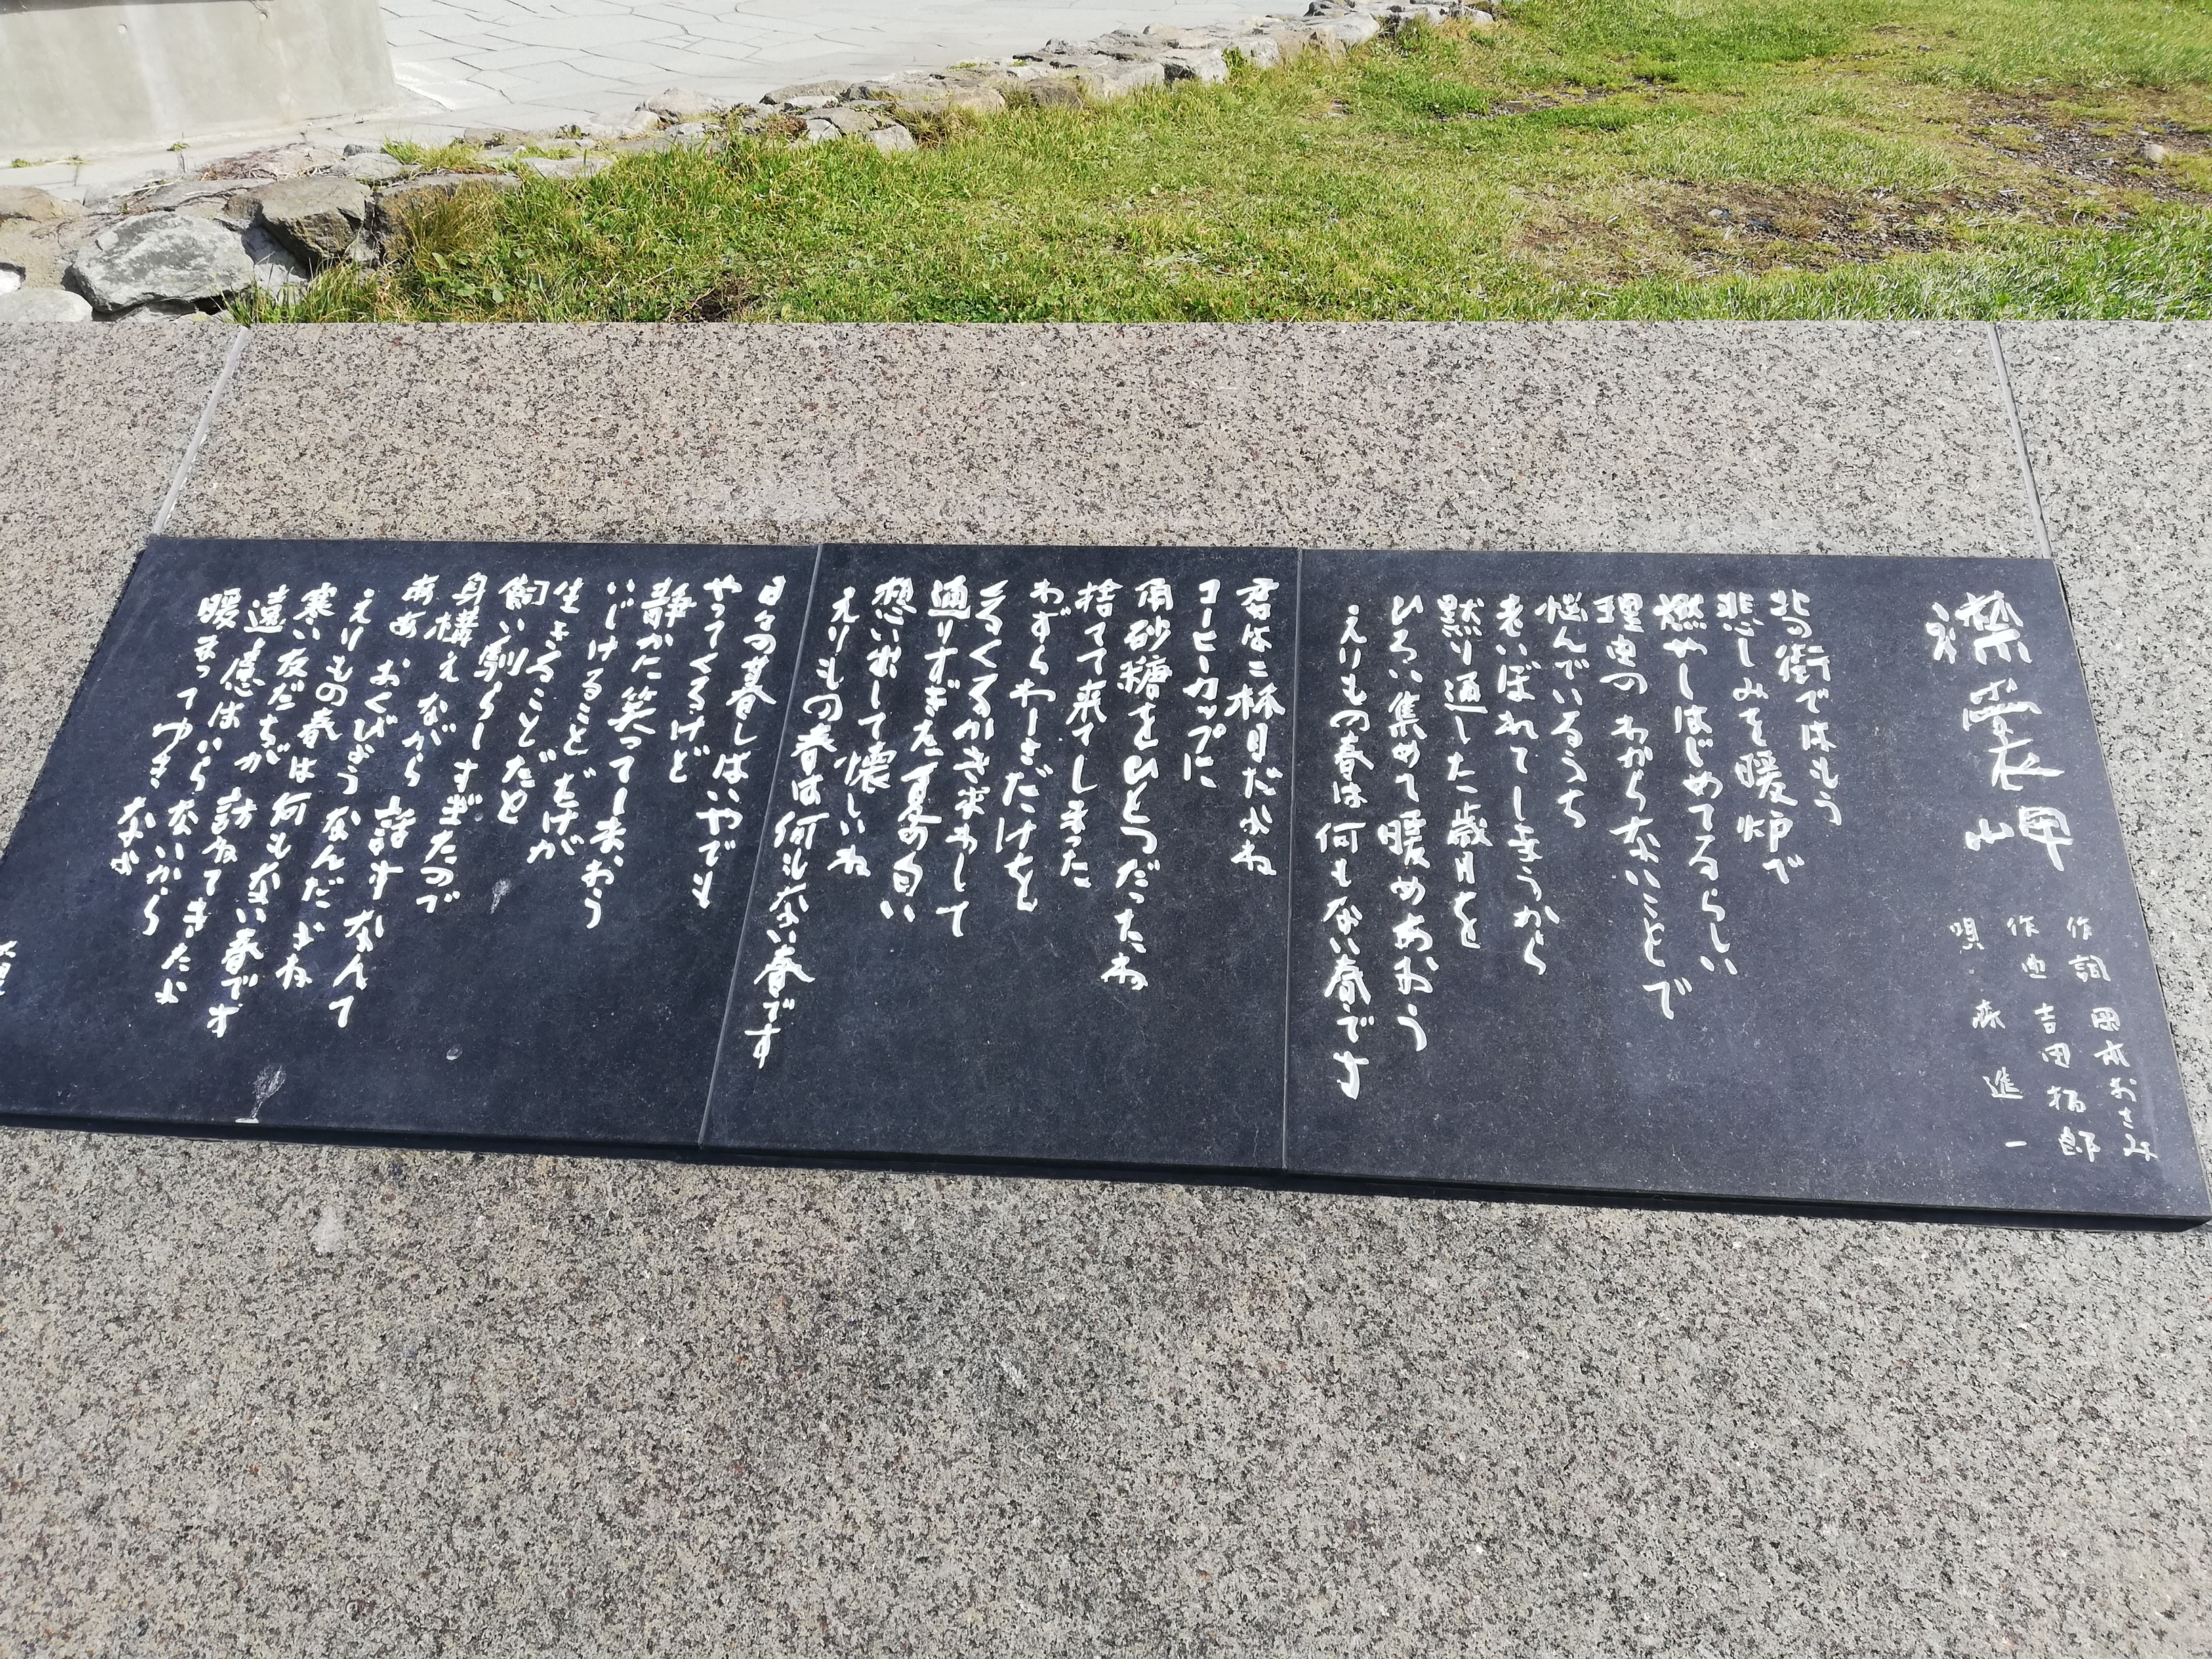 襟裳岬
作詞 岡本おさみ
作曲 吉田拓郎
唄 森進一
北の街ではもう
悲しみを暖炉で
燃やしはじめてるらしい
理由のわからないことで
悩んでいるうち
老いぼれてしまうから
黙り通した歳月を
ひろい集めて暖めあおう
えりもの春は何もない春です
君は二杯目だよね
コーヒーカップに
角砂糖をひとつだったね
捨てて来てしまった
わずらわしさだけを
くるくるかき求わして
通りすぎた夏の匂い
想い出して懐しいね
えりもの春は何もない春です
日々の暮しはいやでも
やってくるけど
静かに笑ってしまおう
いじけることだけが
生きることだと
飼い馴らしすぎたので
身構えながら話すなんて
ああ おくびょうなんだよね
えりもの春は何もない春です
寒い友だちが訪ねてきたよ
遠慮はいらないから
暖まってゆきなよ